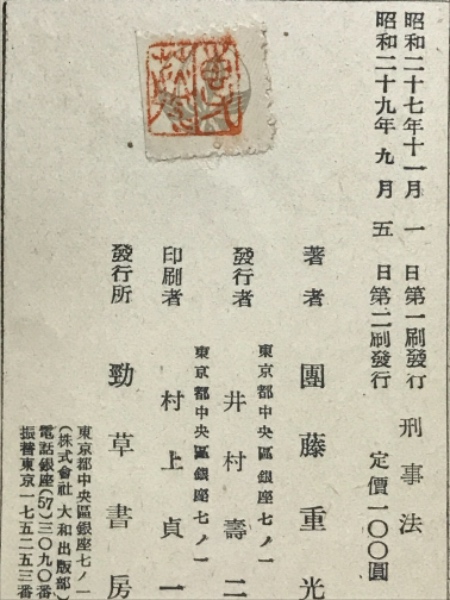 昭和二十七年十一月一日第一刷發行 刑事法
昭和二十九年九月五日第二刷發行 定價一〇〇圓
著者 團藤重光
東京都中央區銀座七ノ一
發行者 井村壽二
東京都中央區銀座七ノ一
印刷者 村上貞一
發行所 勁草書房
東京都中央區銀座七ノ一
(株式會社大和出版部)
電話銀座(57)三〇九〇番
振替東京一七五二五三番